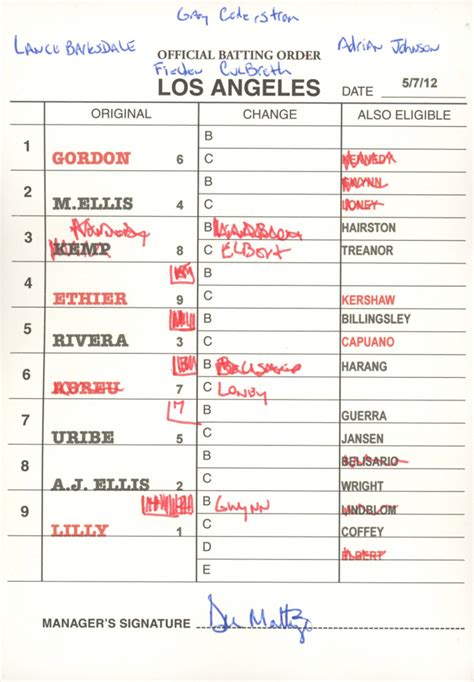 Gary Cederstrom
Lance Barksdale
Adrian Johnson
OFFICIAL BATTING ORDER
Fieldin Culbreth
LOS ANGELES DATE 5/7/12
ORIGINAL CHANGE ALSO ELIGIBLE
1 B
GORDON 6 C KENNEDY
2 B GWYNN
M.ELLIS 4 C LONEY
3 B HAIRSTON
KEMP 8 C ELBERT TREANOR
4 B
ETHIER 9 C KERSHAW
5 B BILLINGSLEY
RIVERA 3 C CAPUANO
6 B BELISARIO HARANG
ABREU 7 C LONEY
7 7 B GUERRA
URIBE 5 C JANSEN
8 B BELISARIO
A.J. ELLIS 2 C WRIGHT
9 B GWYNN LINDBLOM
LILLY 1 C COFFEY
D ELBERT
E
MANAGER'S SIGNATURE